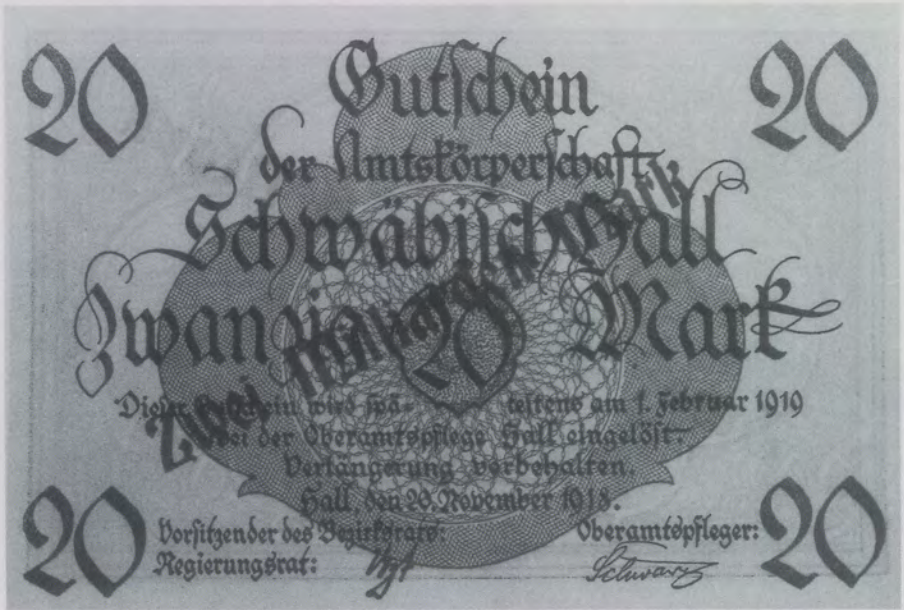 20 20
Gutschein
der Amtskörperschaft
Schwäbisch Hall
Zwanzig 20 Mark
Zwei Millionen Mark
Dieser Gutschein wird spä- testens am 1. Februar 1919
bei der Oberamtspflege Hall eingelöst.
Verlängerung vorbehalten.
Hall, den 20. November 1918.
Vorsitzender des Bezirksrats: Oberamtspfleger:
Regierungsrat: Schwarz
20 20